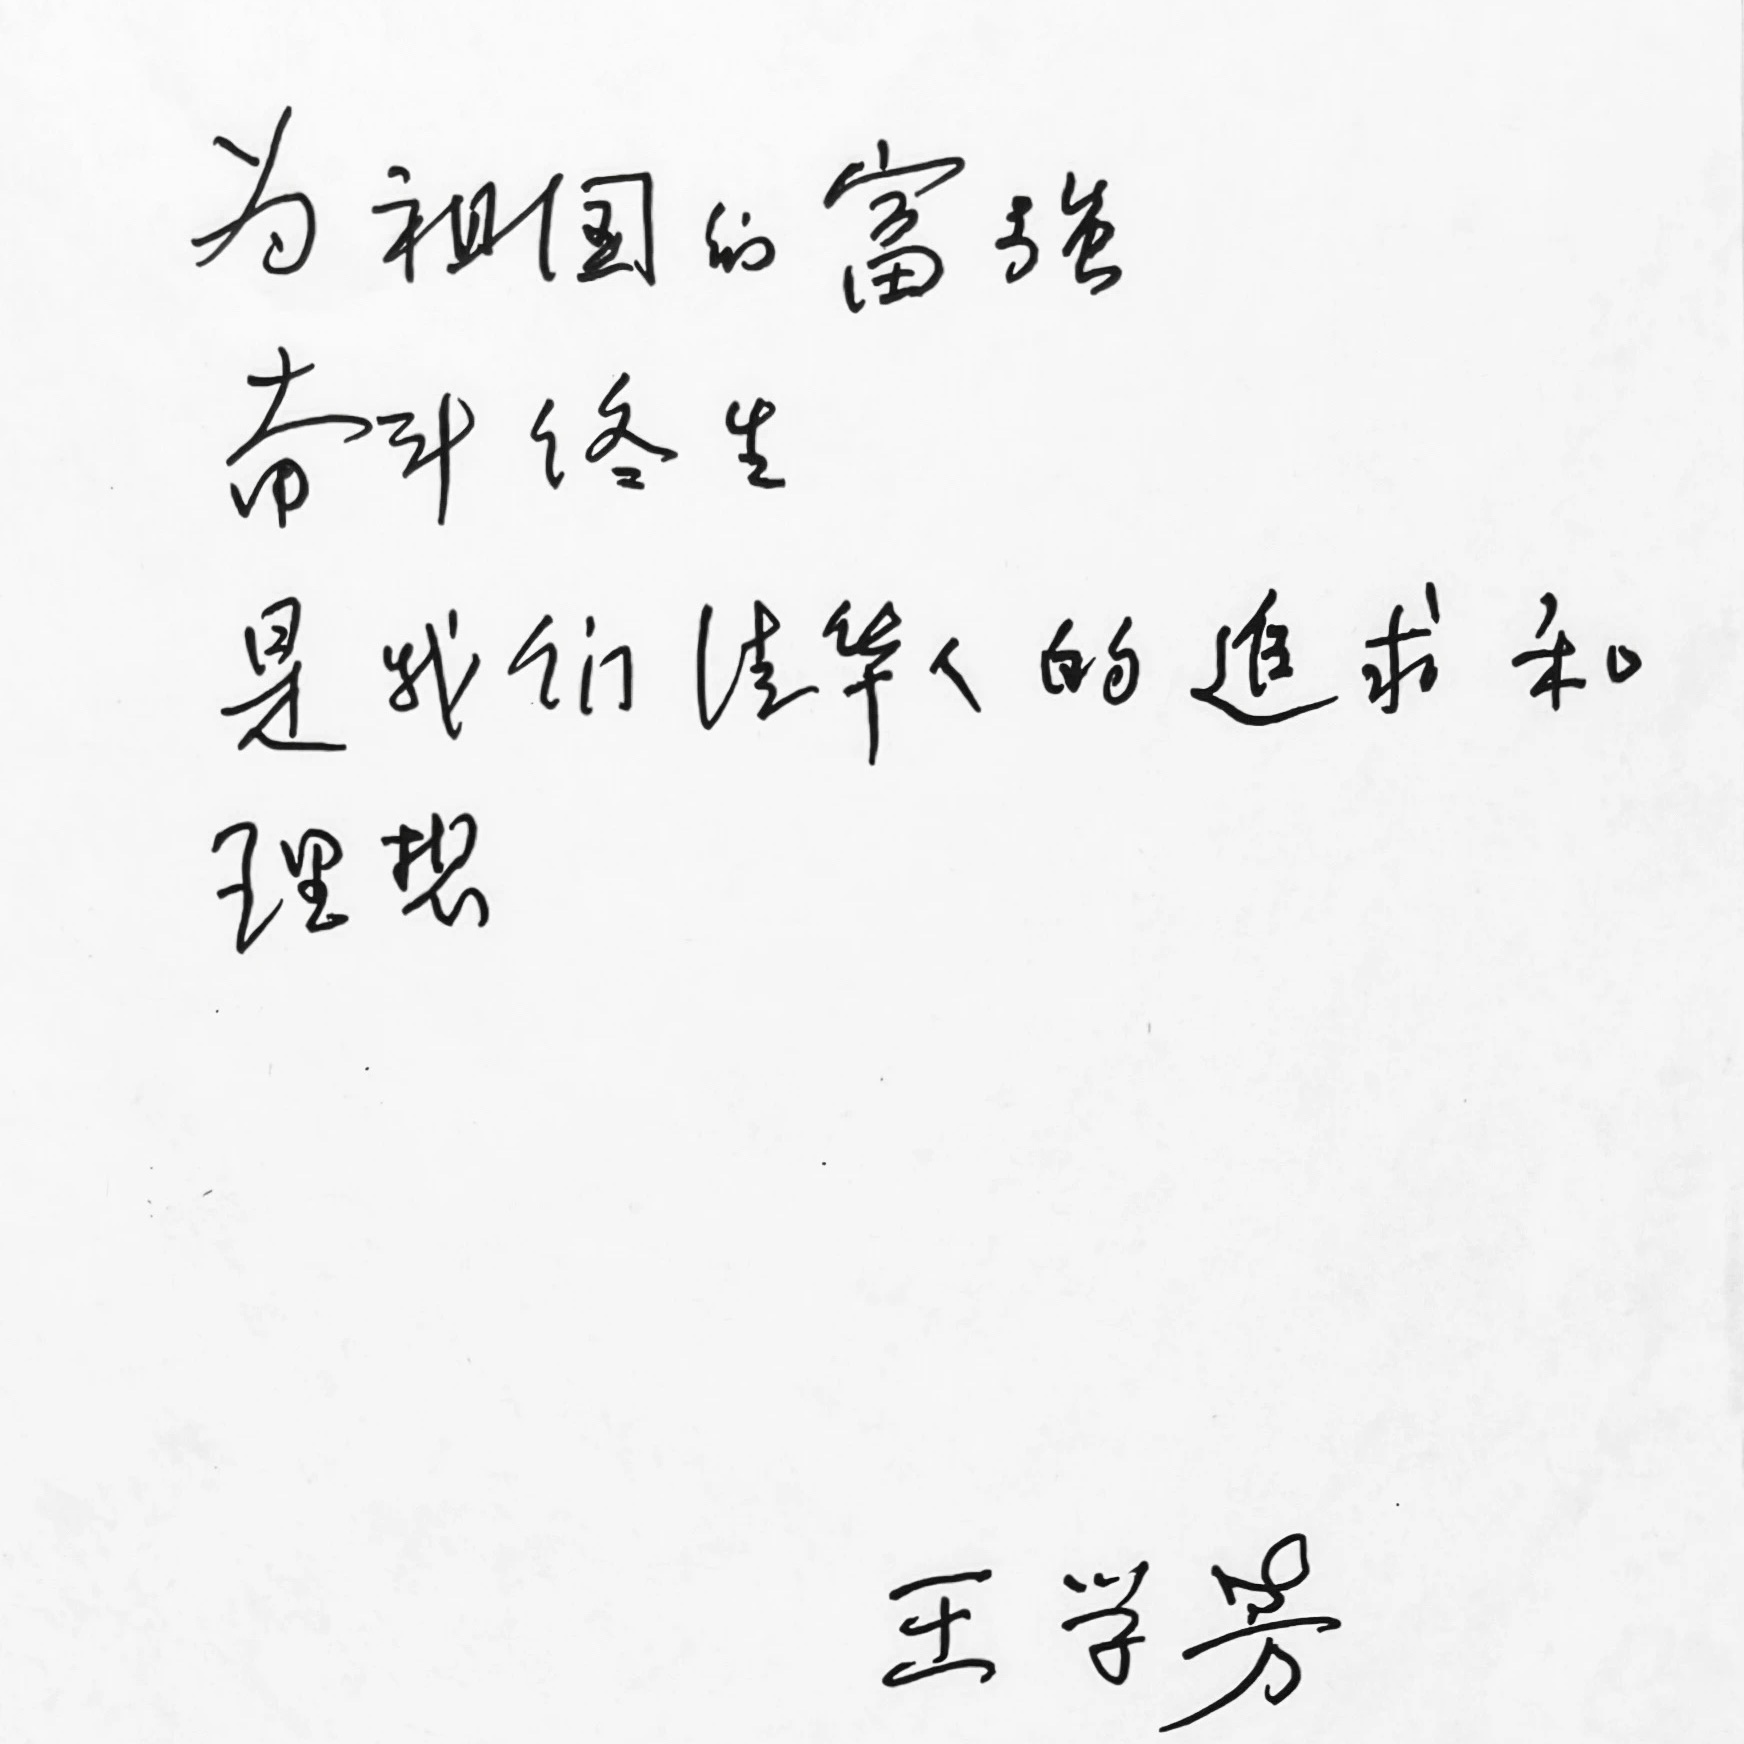 为祖国的富强
奋斗终生
是我们清华人的追求和
理想
王学芳